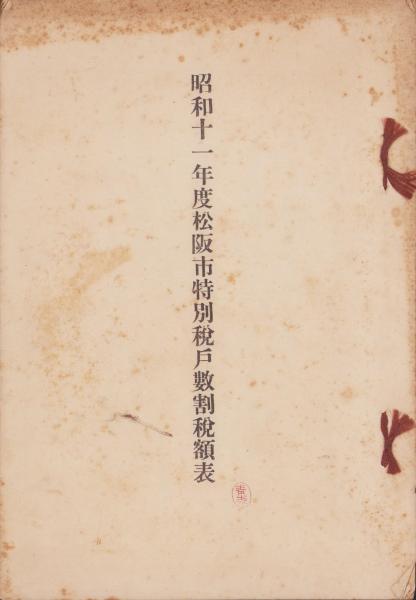 昭和十一年度松阪市特別稅戶數割稅額表